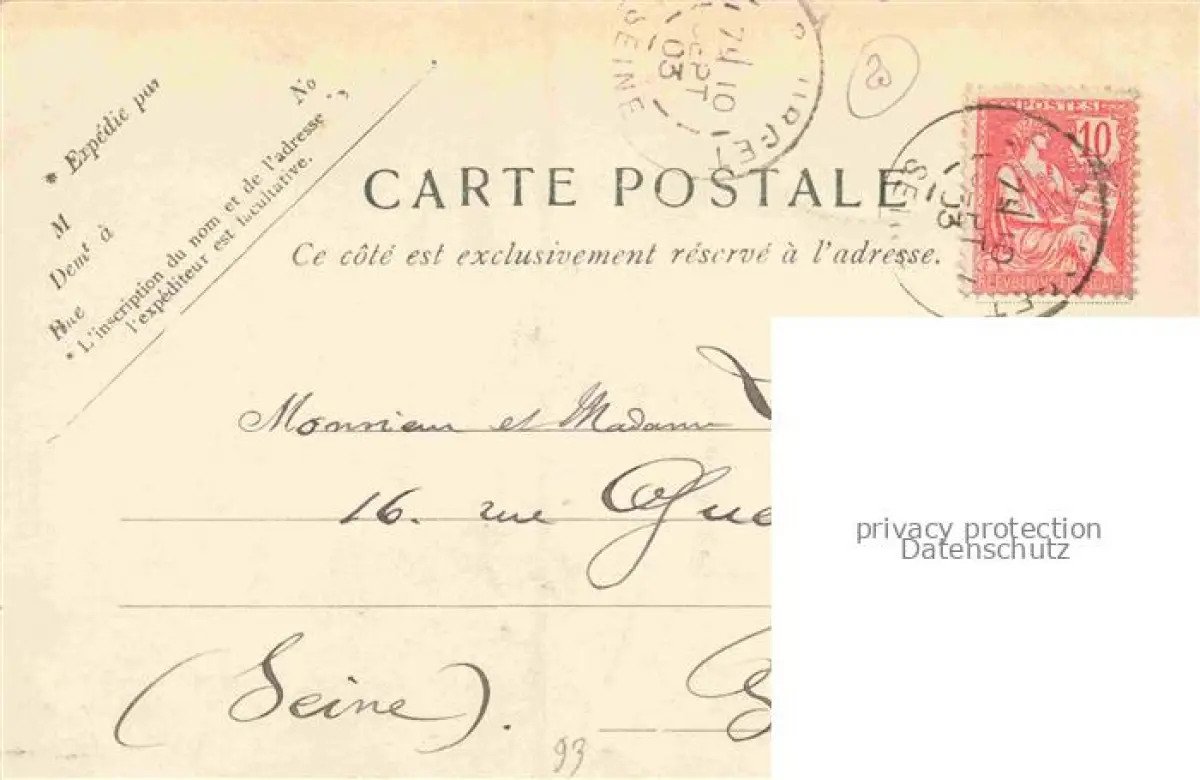 * Expédié par
M
Demt à
Rue
No
* L'inscription du nom et de l'adresse de
l'expéditeur est facultative.
SEINE
7H 10
SEPT
03
POSTES
10
RÉPUBLIQUE FRANÇAISE
SEINE
7H 10
SEPT
03
CARTE POSTALE
Ce côté est exclusivement réservé à l'adresse.
Monsieur et Madame
16. rue
(Seine).
93
privacy protection
Datenschutz